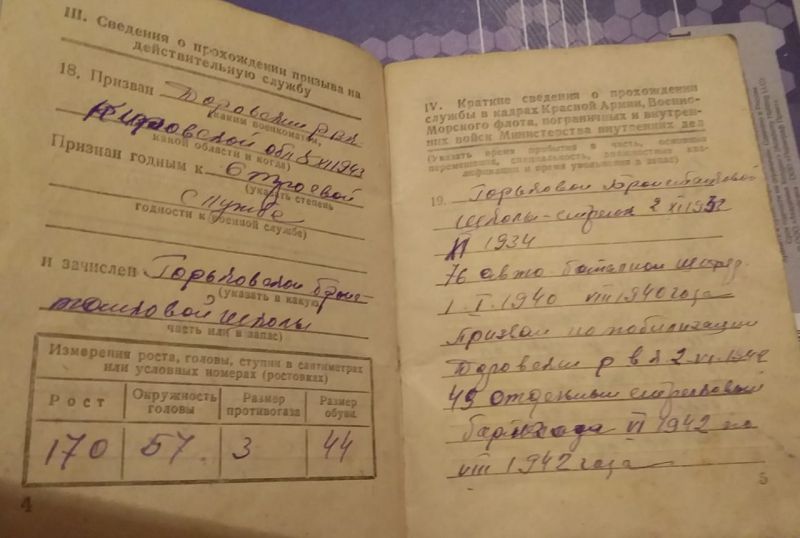 III. Сведения о прохождении призыва на
действительную службу
18. Призван Даровским рвк
(каким военкоматом,
Кировской обл
какой области и когда)
Признан годным к строевой
(указать степень
службе
годности к военной службе)
и зачислен Горьковской броне
(указать в какую
танковой школы
часть или в запас)
Измерения роста, головы, ступни в сантиметрах
или условных номерах (ростовках)
Рост
Окружность
головы
Размер
противогаза
Размер
обуви
170 57 3 44
4
IV. Краткие сведения о прохождении
службы в кадрах Красной Армии, Военно-
Морского флота, пограничных и внутрен-
них войск Министерства внутренних дел
(Указать время прибытия в часть, основные
перемещения, специальность, должностная ква-
лификация и время увольнения в запас)
19. Горьковской бронетанковой
школы-стрелок 2 XII
XI 1934
76 авто баталион
1. I. 1940 VIII 1940 года
Призван по мобилизации
Даровским р в к 2 VI
49 отдельный стрелковый
VI 1942 по
VIII 1942 года
5